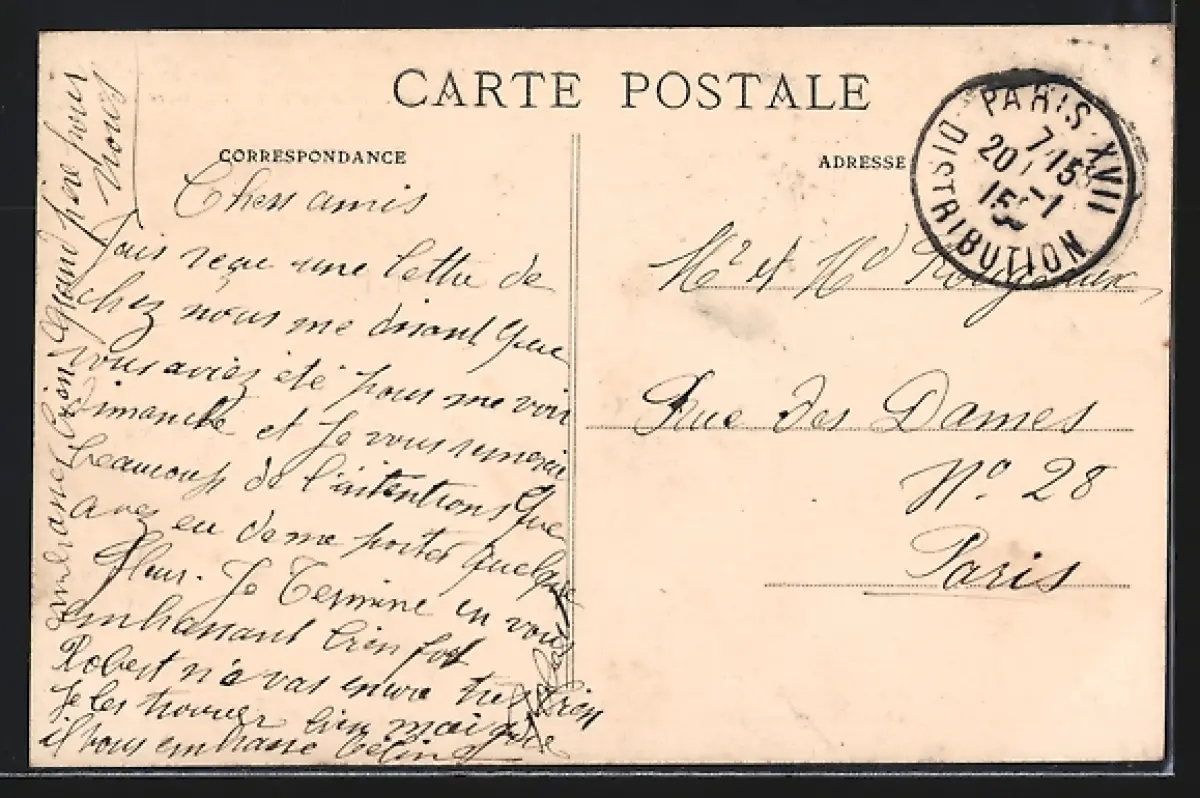 CARTE POSTALE
CORRESPONDANCE
Chers amis
J'ais reçu une lettre de
chez nous me disant que
vous aviez été pour me voir
dimanche et je vous remercie
beaucoup de l'intentions que
avez eu de me porter quelque
fleur. Je Termine en vous
embrassant bien fort
Robert n'a vas encore très bien
je les trouver bien maigre
il vous embrasse Céline
embrasse bien Grand père pour
nous
ADRESSE
Mr et Md
Rue des Dames
No 28
Paris
PARIS XVII
DISTRIBUTION
7 15
20
15